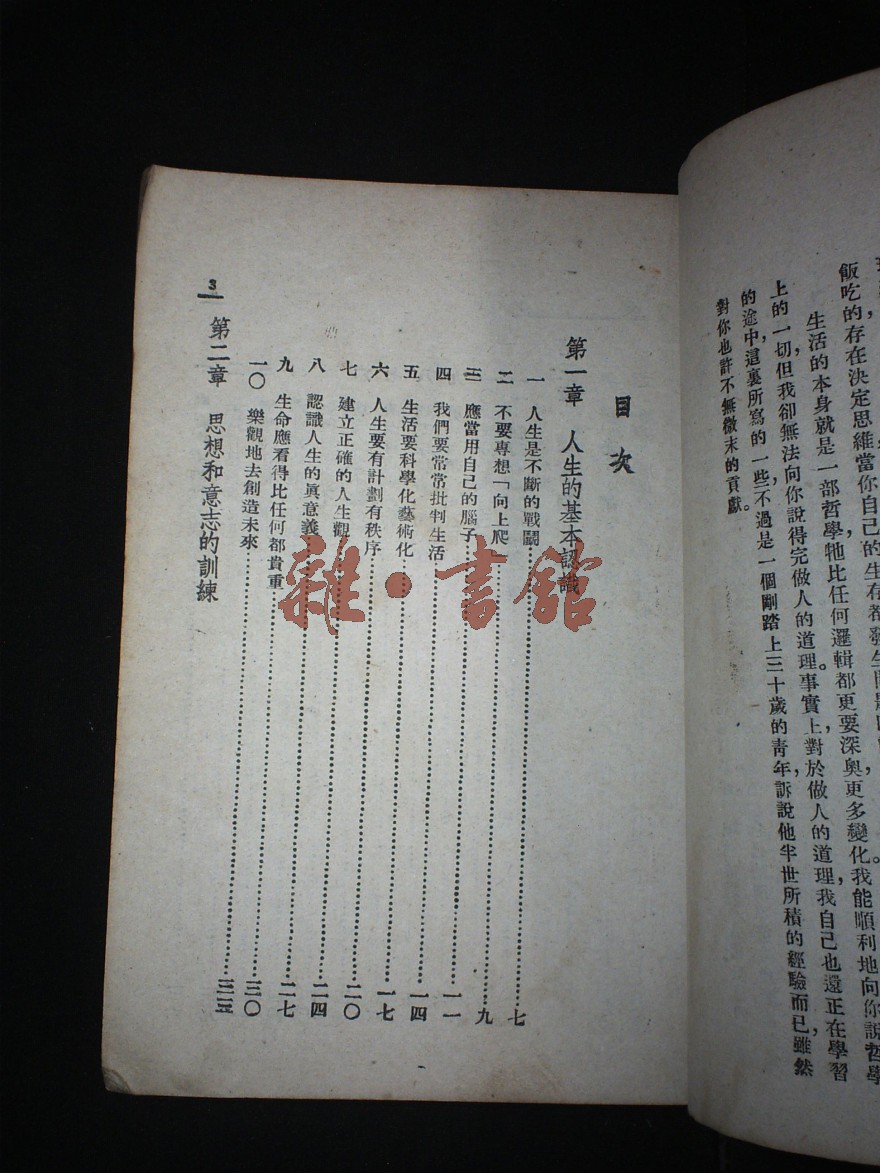 飯吃的存在決定思維當你自己的生存都發生問
生活的本身就是一部哲學牠比任何邏輯都更要深奧更多變化。我能順利地向你說哲學
上的一切但我卻無法向你說得完做人的道理。事實上對於做人的道理,我自己也還正在學習
的途中,這裏所寫的一些不過是一個剛踏上三十歲的青年,訴說他半世所積的經驗而已,雖然
對你也許不無微末的貢獻。
目次
第一章 人生的基本認識
一 人生是不斷的戰鬭……七
二 不要專想「向上爬」……九
三 應當用自己的腦子……一一
四 我們要常常批判生活……一四
五 生活要科學化藝術化……一七
六 人生要有計劃有秩序……二〇
七 建立正確的人生觀……二四
八 認識人生的眞意義……二七
九 生命應看得比任何都貴重……三〇
一〇 樂觀地去創造未來……三五
第二章 思想和意志的訓練
3
雜·書館